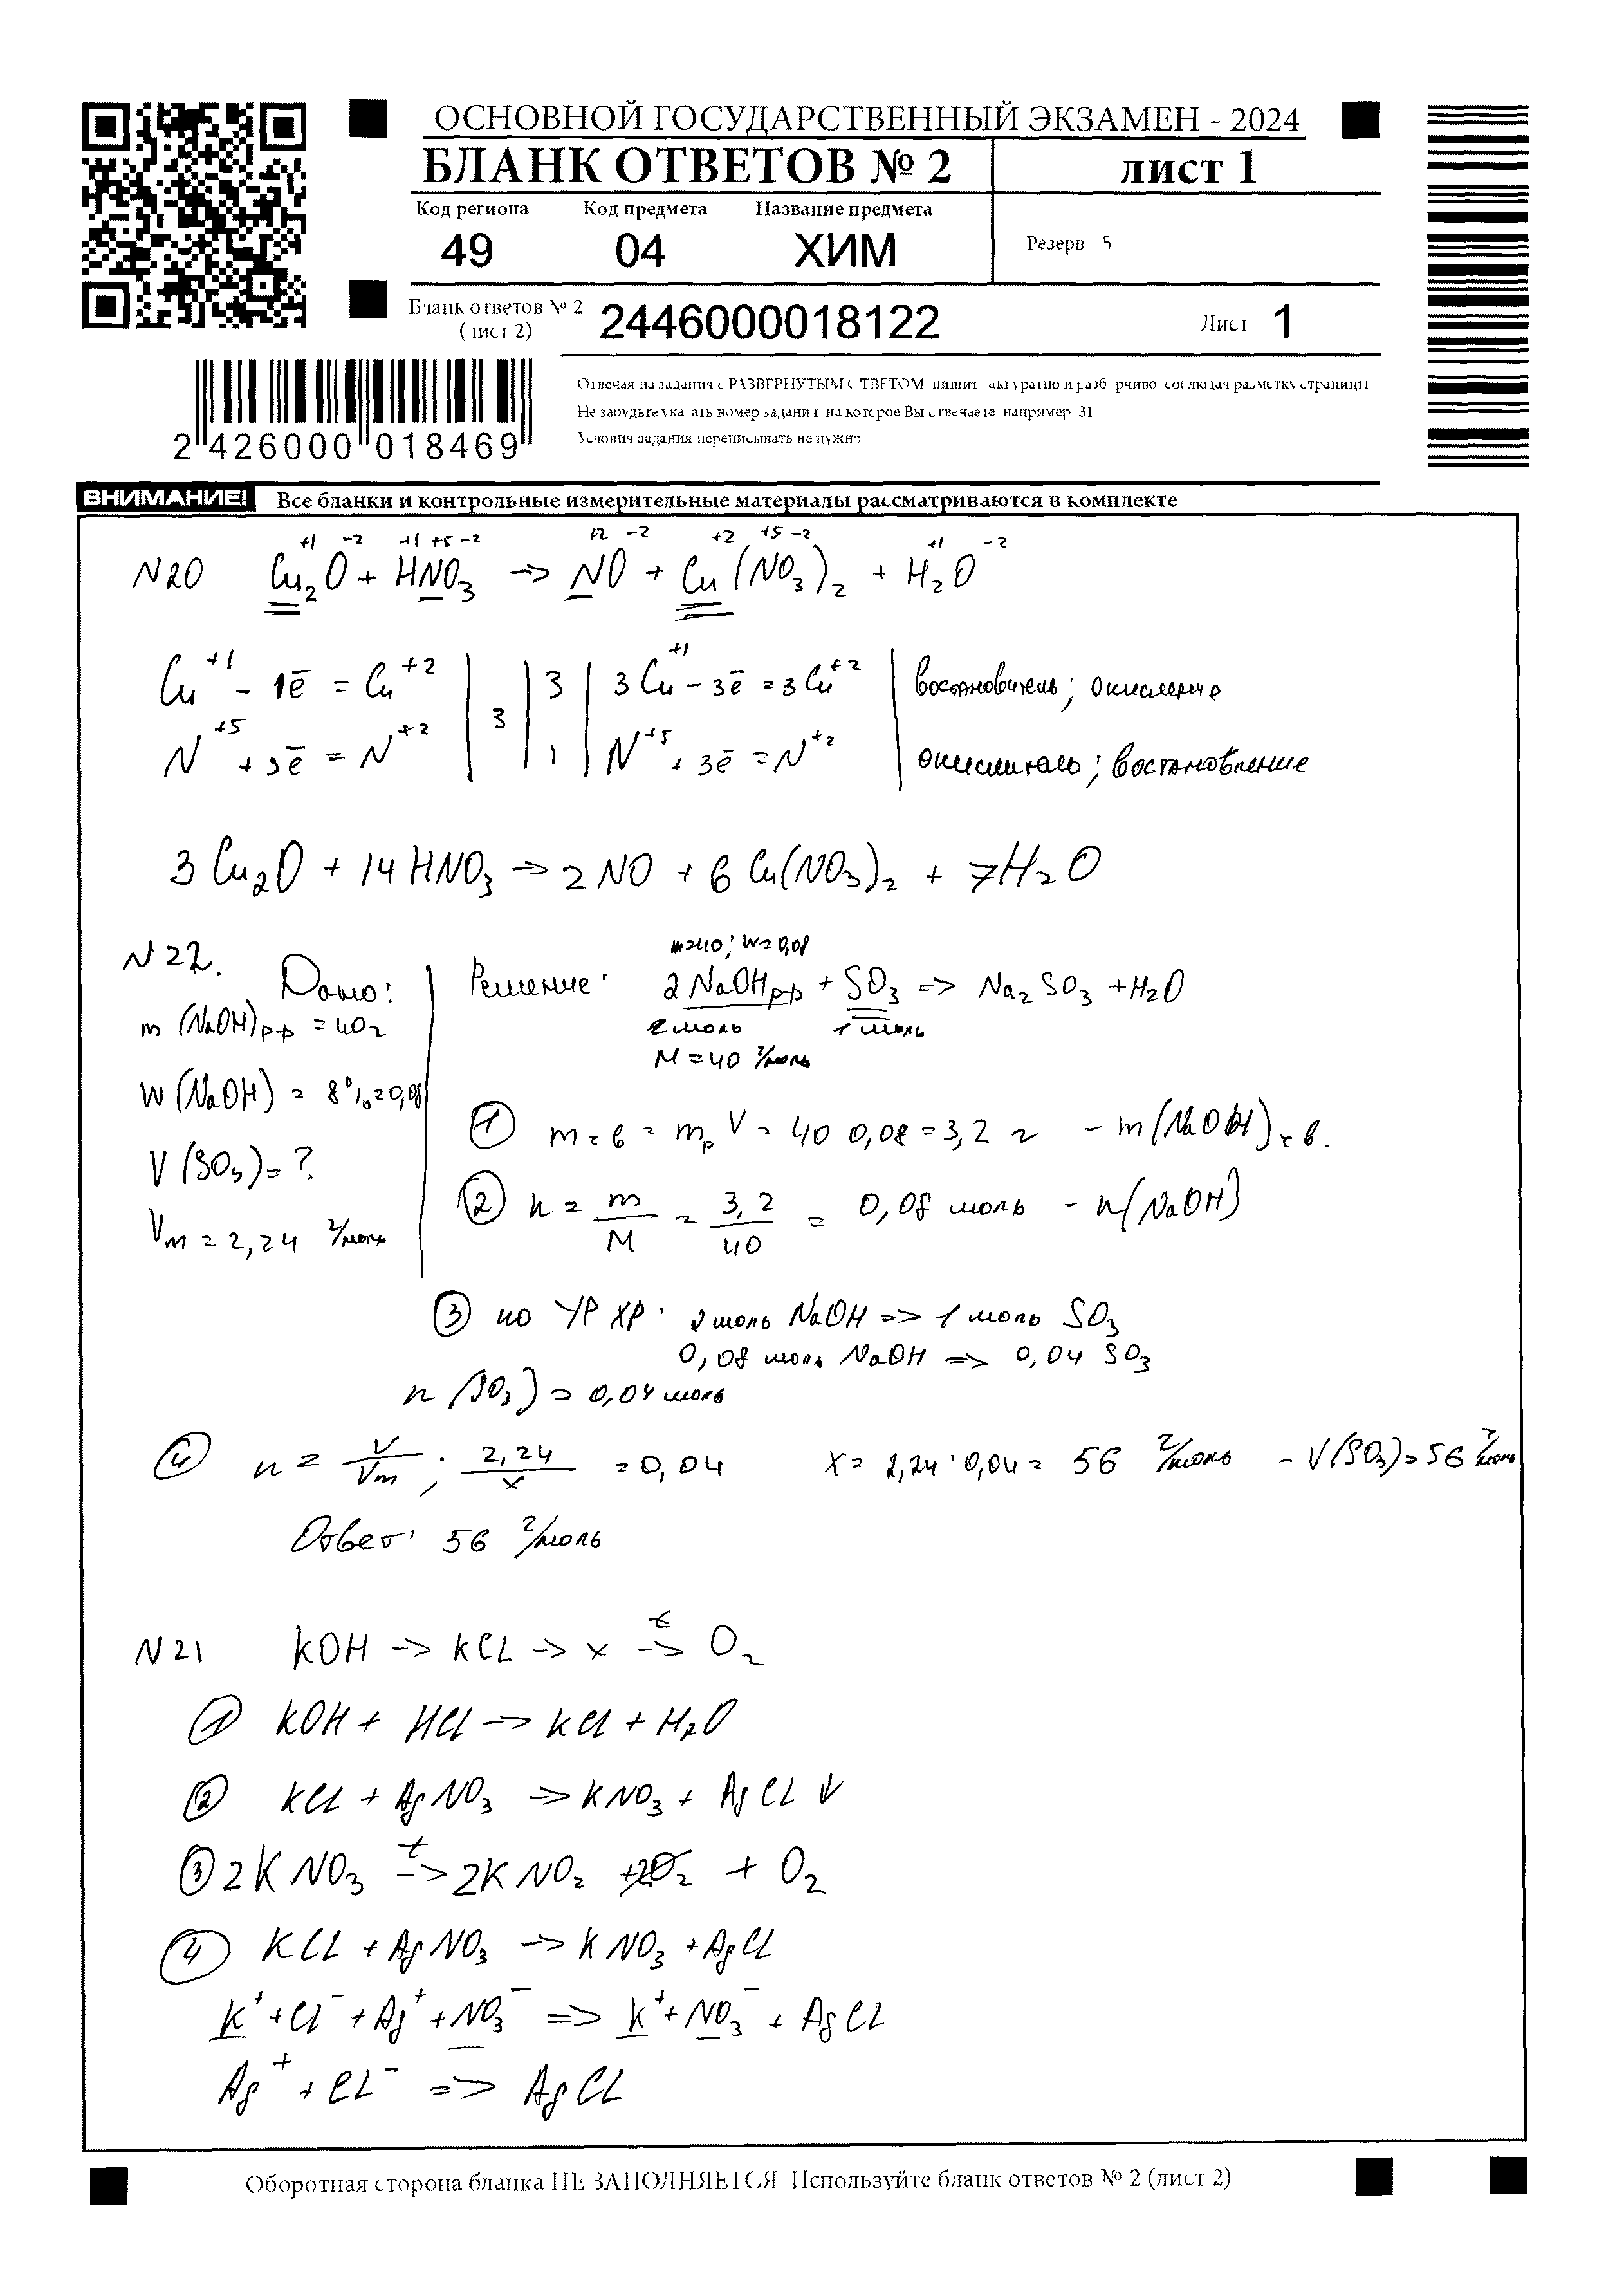 ОСНОВНОЙ ГОСУДАРСТВЕННЫЙ ЭКЗАМЕН - 2024
БЛАНК ОТВЕТОВ № 2
лист 1
Код региона Код предмета Название предмета
49 04 ХИМ
Резерв 5
Бланк ответов № 2 (лист 2) 2446000018122
Лист 1
2 426000 018469
Отвечая на задания с РАЗВЕРНУТЫМ ОТВЕТОМ пишите аккуратно и разборчиво соблюдая разметку страницы
Не забудьте указать номер задания на которое Вы отвечаете например 31
Условия задания переписывать не нужно
ВНИМАНИЕ! Все бланки и контрольные измерительные материалы рассматриваются в комплекте
+1 -2 +1 +5 -2 +2 -2 +2 +5 -2 +1 -2
N20 Cu₂O + HNO₃ → NO + Cu(NO₃)₂ + H₂O
Cu⁺¹ - 1ē = Cu⁺² | 3 | 3 | 3Cu⁺¹ - 3ē = 3Cu⁺² | востановитель; окисление
N⁺⁵ + 3ē = N⁺² | | 1 | N⁺⁵ + 3ē = N⁺² | окислитель; востановление
3Cu₂O + 14HNO₃ → 2NO + 6Cu(NO₃)₂ + 7H₂O
N22. Дано:
m (NaOH)р-р = 40г
W (NaOH) = 8% = 0,08
V (SO₃) = ?
Vm = 2,24 г/моль
Решение:
m=40; W=0,08
2 NaOHр-р + SO₃ => Na₂SO₃ + H₂O
2 моль 1 моль
M = 40 г/моль
① m ч в = mр V = 40 0,08 = 3,2 г - m(NaOH) ч в.
② n = m/M = 3,2/40 = 0,08 моль - n(NaOH)
③ по УР ХР: 2 моль NaOH => 1 моль SO₃
0,08 моль NaOH => 0,04 SO₃
n (SO₃) = 0,04 моль
④ n = V/Vm ; 2,24/x = 0,04 x = 2,24 : 0,04 = 56 г/моль - V(SO₃) = 56 г/моль
Ответ: 56 г/моль
N21 KOH -> KCl -> x t-> O₂
① KOH + HCl -> KCl + H₂O
② KCl + AgNO₃ -> KNO₃ + AgCl ↓
③ 2KNO₃ t-> 2KNO₂ + O₂
④ KCl + AgNO₃ -> KNO₃ + AgCl
K⁺ + Cl⁻ + Ag⁺ + NO₃⁻ => K⁺ + NO₃⁻ + AgCl
Ag⁺ + Cl⁻ => AgCl
Оборотная сторона бланка НЕ ЗАПОЛНЯЕТСЯ Используйте бланк ответов № 2 (лист 2)